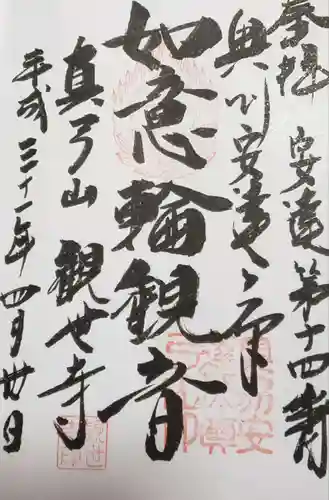 奉拝 安達第十四番
奥州安達ヶ原
如意輪観音
真弓山 観世寺
平成三十一年四月卅日